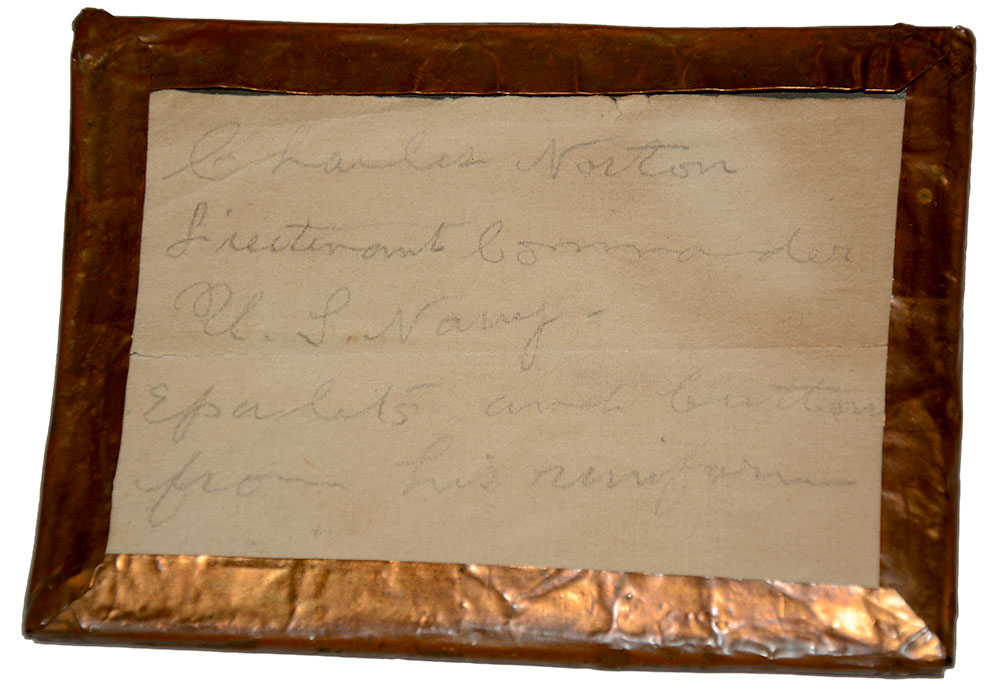 Charles Norton
Lieutenant Commander
U. S. Navy -
Epalets and button
from his uniform